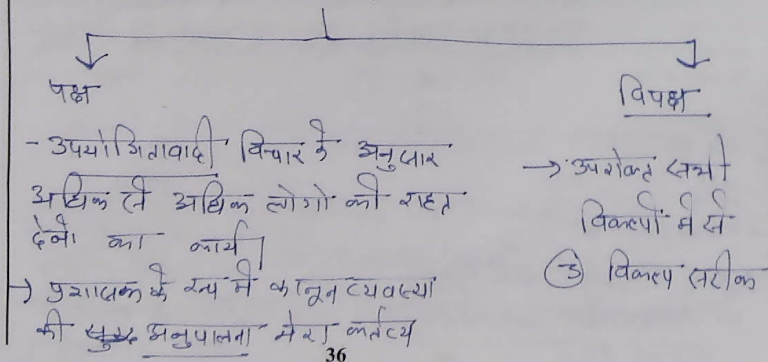 पक्ष
- उपयोगितावादी विचार के अनुसार
अधिक से अधिक लोगो को राहत
देने का कार्य।
→ प्रशासक के रूप में कानून व्यवस्था
की अनुपालना मेरा कर्तव्य
विपक्ष
→ उपरोक्त सभी
विकल्पों में से
3 विकल्प सटीक
36